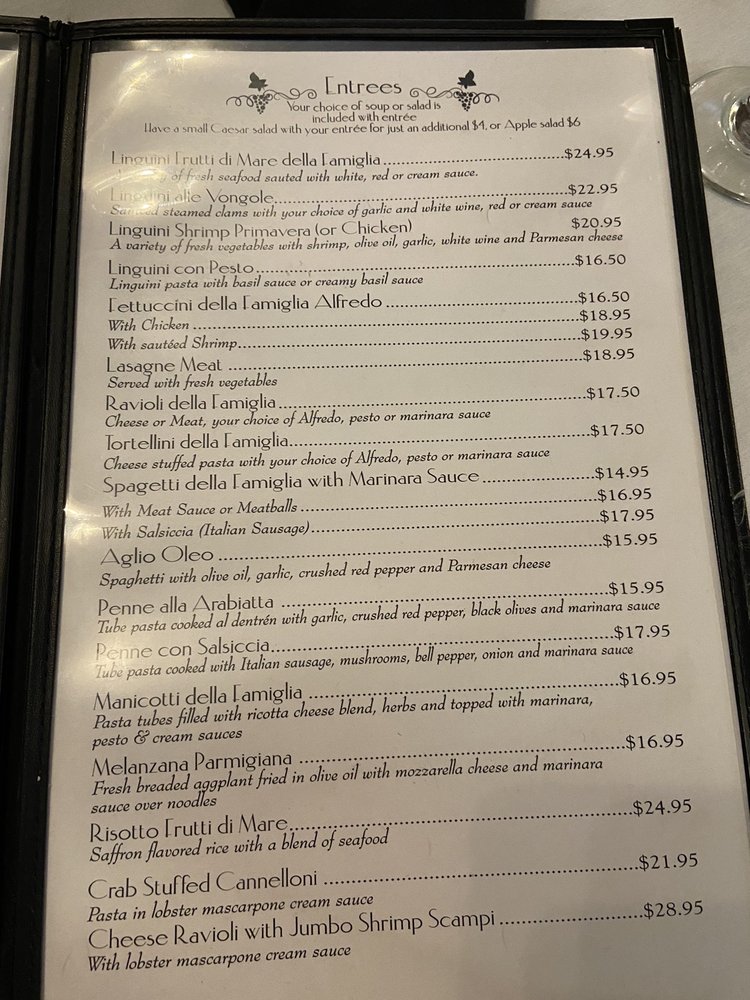 Entrees
Your choice of soup or salad is
included with entrée
Have a small Caesar salad with your entrée for just an additional $4, or Apple salad $6
Linguini Frutti di Mare della Famiglia $24.95
of fresh seafood sauted with white, red or cream sauce.
Linguini alle Vongole $22.95
steamed clams with your choice of garlic and white wine, red or cream sauce
Linguini Shrimp Primavera (or Chicken) $20.95
A variety of fresh vegetables with shrimp, olive oil, garlic, white wine and Parmesan cheese
Linguini con Pesto $16.50
Linguini pasta with basil sauce or creamy basil sauce
Fettuccini della Famiglia Alfredo $16.50
With Chicken $18.95
With sautéed Shrimp $19.95
Lasagne Meat $18.95
Served with fresh vegetables
Ravioli della Famiglia $17.50
Cheese or Meat, your choice of Alfredo, pesto or marinara sauce
Tortellini della Famiglia $17.50
Cheese stuffed pasta with your choice of Alfredo, pesto or marinara sauce
Spagetti della Famiglia with Marinara Sauce $14.95
With Meat Sauce or Meatballs $16.95
With Salsiccia (Italian Sausage) $17.95
Aglio Oleo $15.95
Spaghetti with olive oil, garlic, crushed red pepper and Parmesan cheese
Penne alla Arabiatta $15.95
Tube pasta cooked al dentrén with garlic, crushed red pepper, black olives and marinara sauce
Penne con Salsiccia $17.95
Tube pasta cooked with Italian sausage, mushrooms, bell pepper, onion and marinara sauce
Manicotti della Famiglia $16.95
Pasta tubes filled with ricotta cheese blend, herbs and topped with marinara,
pesto & cream sauces
Melanzana Parmigiana $16.95
Fresh breaded aggplant fried in olive oil with mozzarella cheese and marinara
sauce over noodles
Risotto Frutti di Mare $24.95
Saffron flavored rice with a blend of seafood
Crab Stuffed Cannelloni $21.95
Pasta in lobster mascarpone cream sauce
Cheese Ravioli with Jumbo Shrimp Scampi $28.95
With lobster mascarpone cream sauce